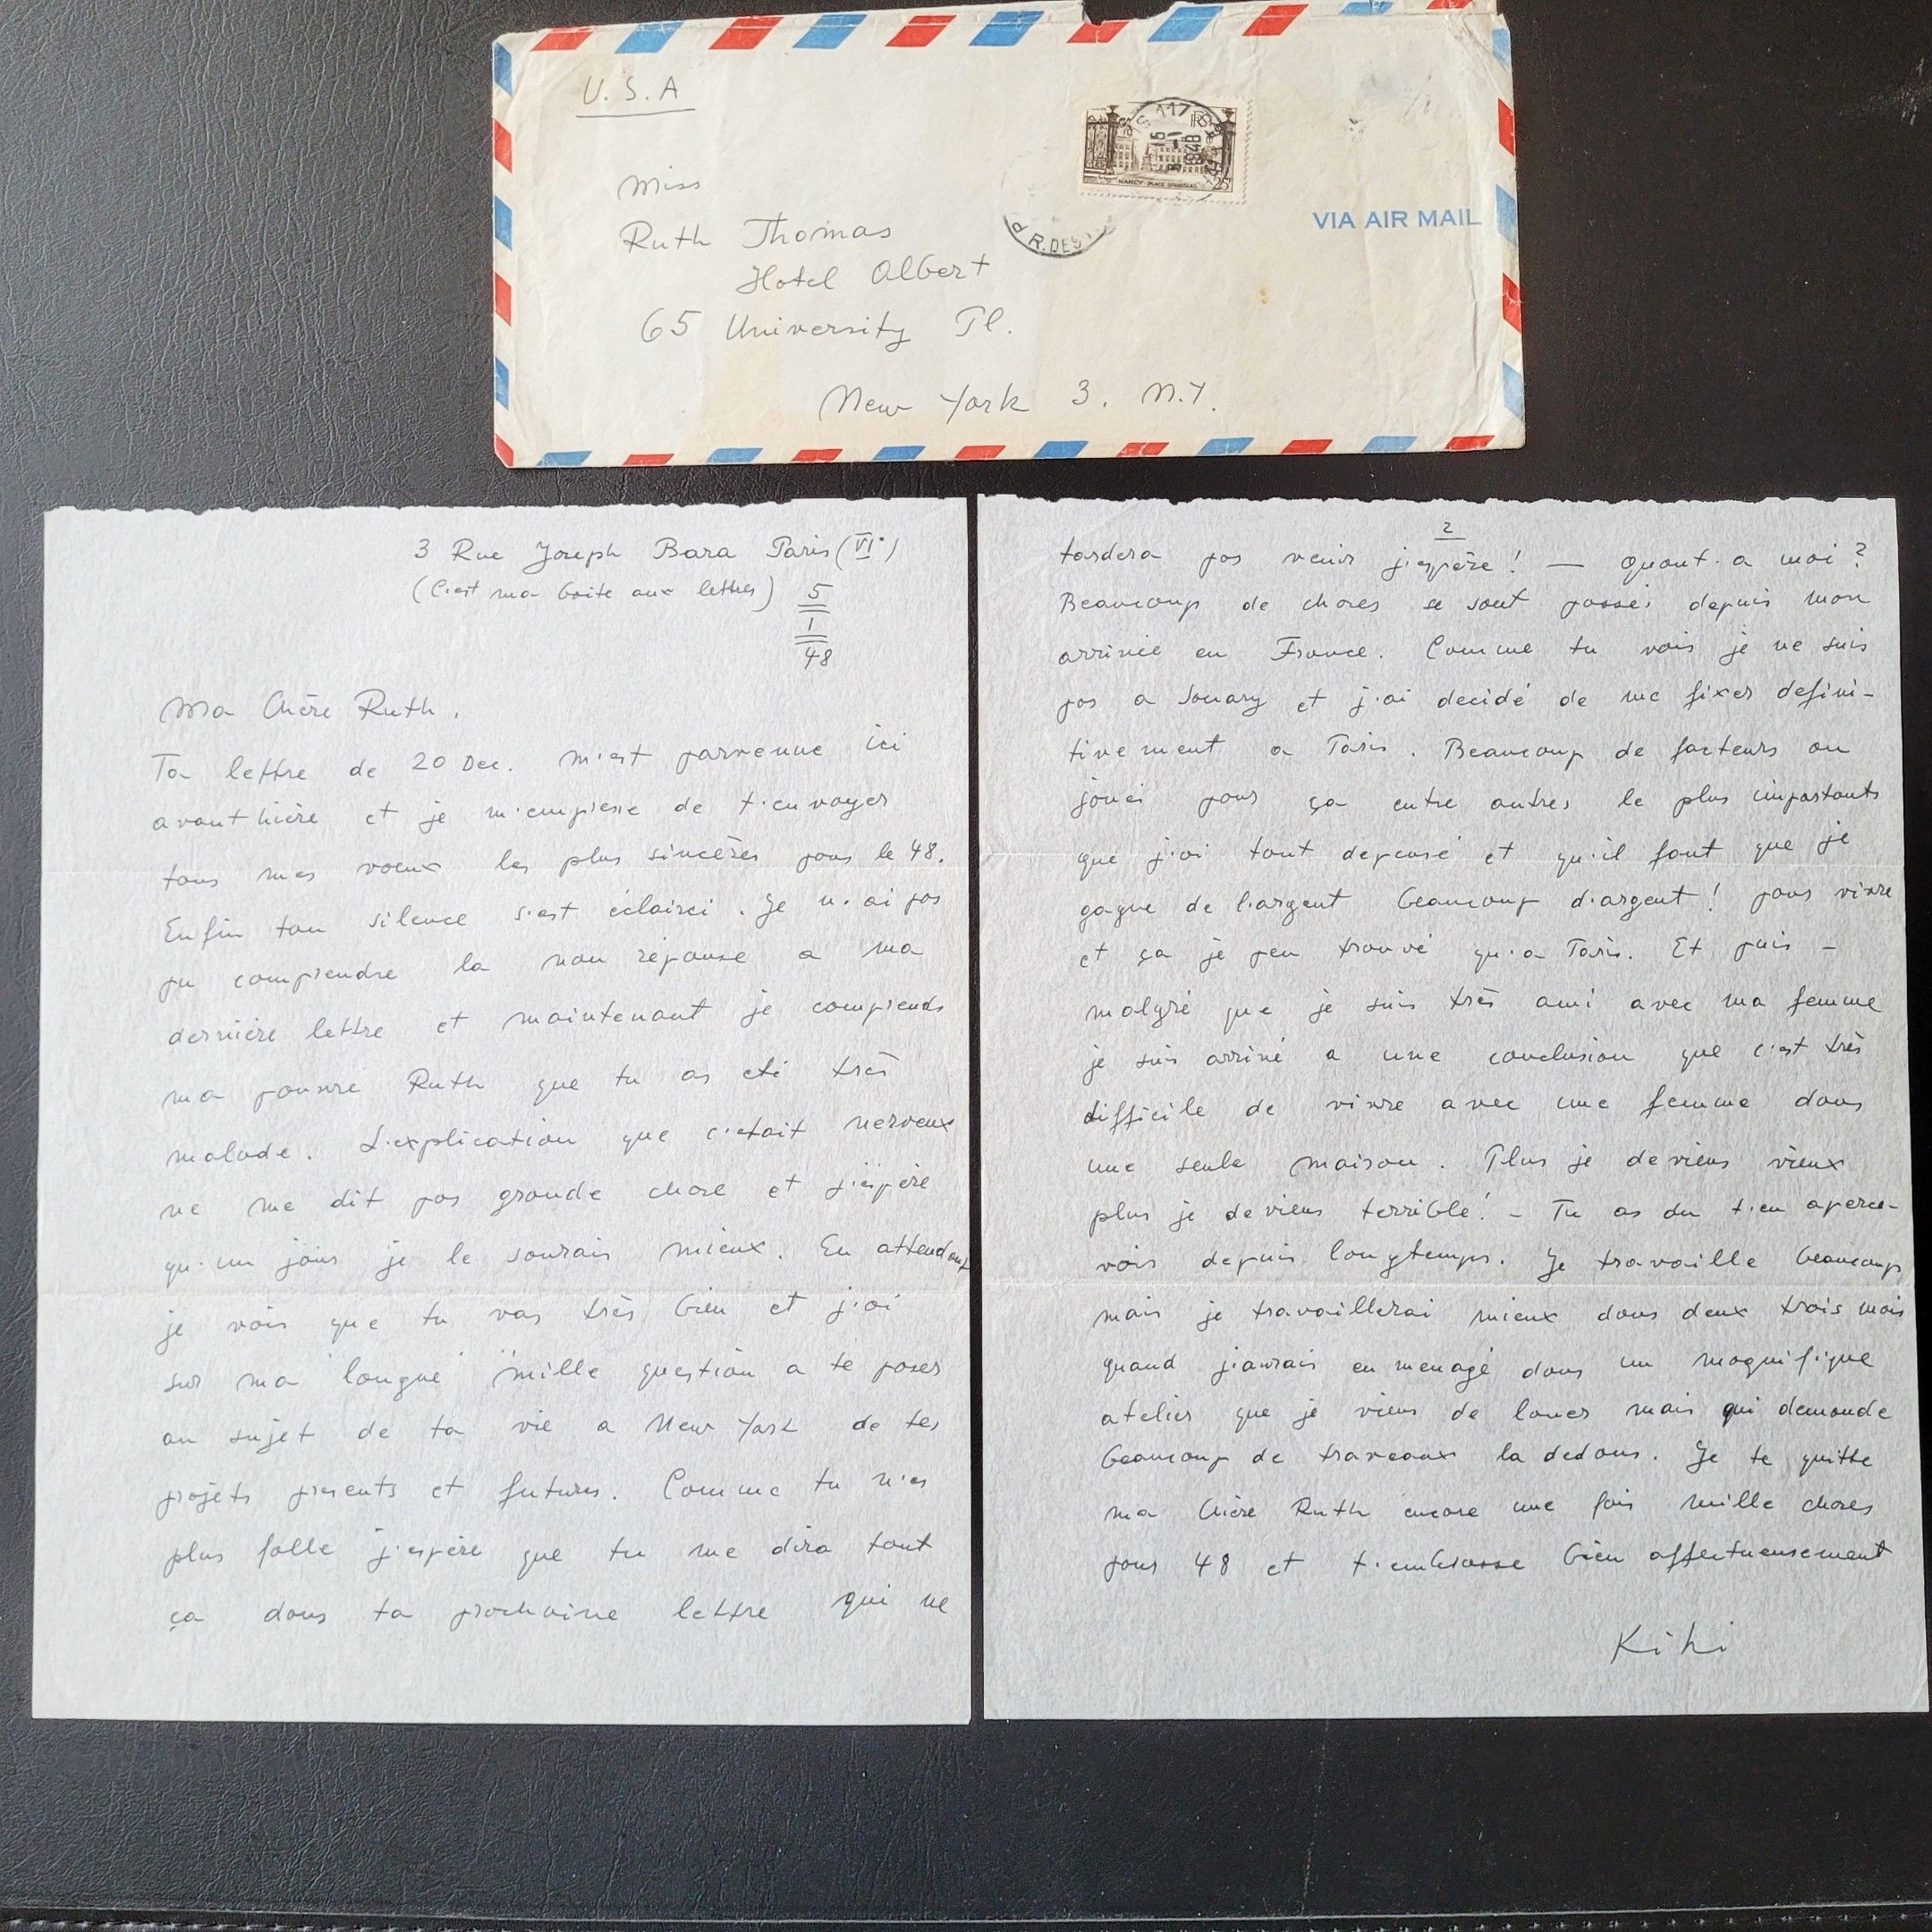 U.S.A
Miss
Ruth Thomas
Hotel Albert
65 University Pl.
New York 3. N.Y.
VIA AIR MAIL
117
15
8 - 1
1948
NANCY PLACE STANISLAS
25F
R. DES
3 Rue Joseph Bara Paris (VI°)
(C'est ma boite aux lettres)
5
1
48
Ma Chère Ruth.
Ta lettre de 20 Dec. m'est parvenue ici
avant hière et je m'empresse de t'envoyer
tous mes voeux les plus sincères pour le 48.
Enfin ton silence s'est éclairci. Je n'ai pas
pu comprendre la non réponse a ma
dernière lettre et maintenant je comprends
ma pouvre Ruth que tu as eté très
malade. L'explication que c'etait nerveux
ne me dit pas grande chose et j'éspère
qu'un jour je le sourais mieux. En attendant
je vois que tu vas très bien et j'ai
sur ma "longue" mille question a te poser
au sujet de ta vie a New York de tes
projets presents et futures. Comme tu n'es
plus folle j'espère que tu me dira tout
ça dans ta prochaine lettre qui ne
2
tardera pas venir j'espère! — Quant a moi?
Beaucoup de choses se sont passés depuis mon
arrivée en France. Comme tu vois je ne suis
pas a Sanary et j'ai decidé de me fixer defini-
tivement a Paris. Beaucoup de facteurs on
joués pour ça entre autres le plus importants
que j'ai tout depensé et qu'il faut que je
gagne de l'argent beaucoup d'argent! pour vivre
et ça je peu trouvé qu'a Paris. Et puis -
malgré que je suis très ami avec ma femme
je suis arrivé a une conclusion que c'est très
difficile de vivre avec une femme dans
une seule maison. Plus je deviens vieux
plus je deviens terrible! - Tu as du t'en aperce-
vois depuis longtemps. Je travaille beaucoup
mais je travaillerai mieux dans deux trois mois
quand j'aurais enmenagé dans un magnifique
atelier que je viens de louer mais qui demande
beaucoup de traveaux la dedans. Je te quitte
ma Chère Ruth encore une fois mille choses
pour 48 et t'embrasse bien affectueusement
Kiki